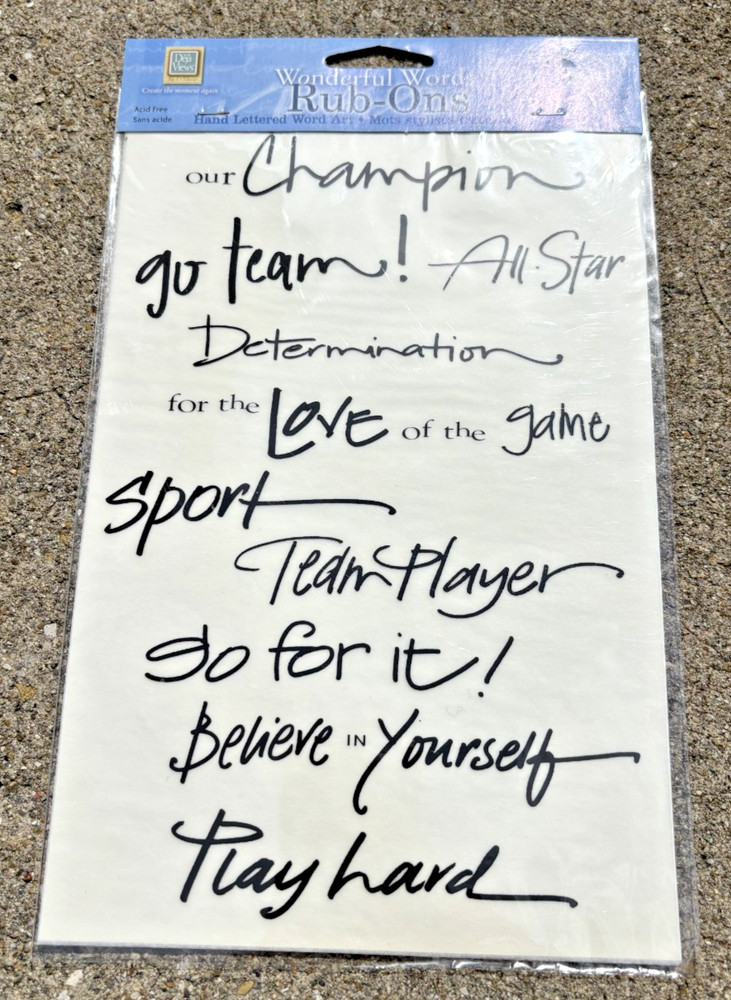 Déjà Views
Create the moment again
Acid Free
Sans acide
Wonderful Words
Rub-Ons
Hand Lettered Word Art • Mots stylisés
our Champion
go team! All-Star
Determination
for the LOVE of the game
sport
Team Player
go for it!
Believe IN Yourself
Play hard